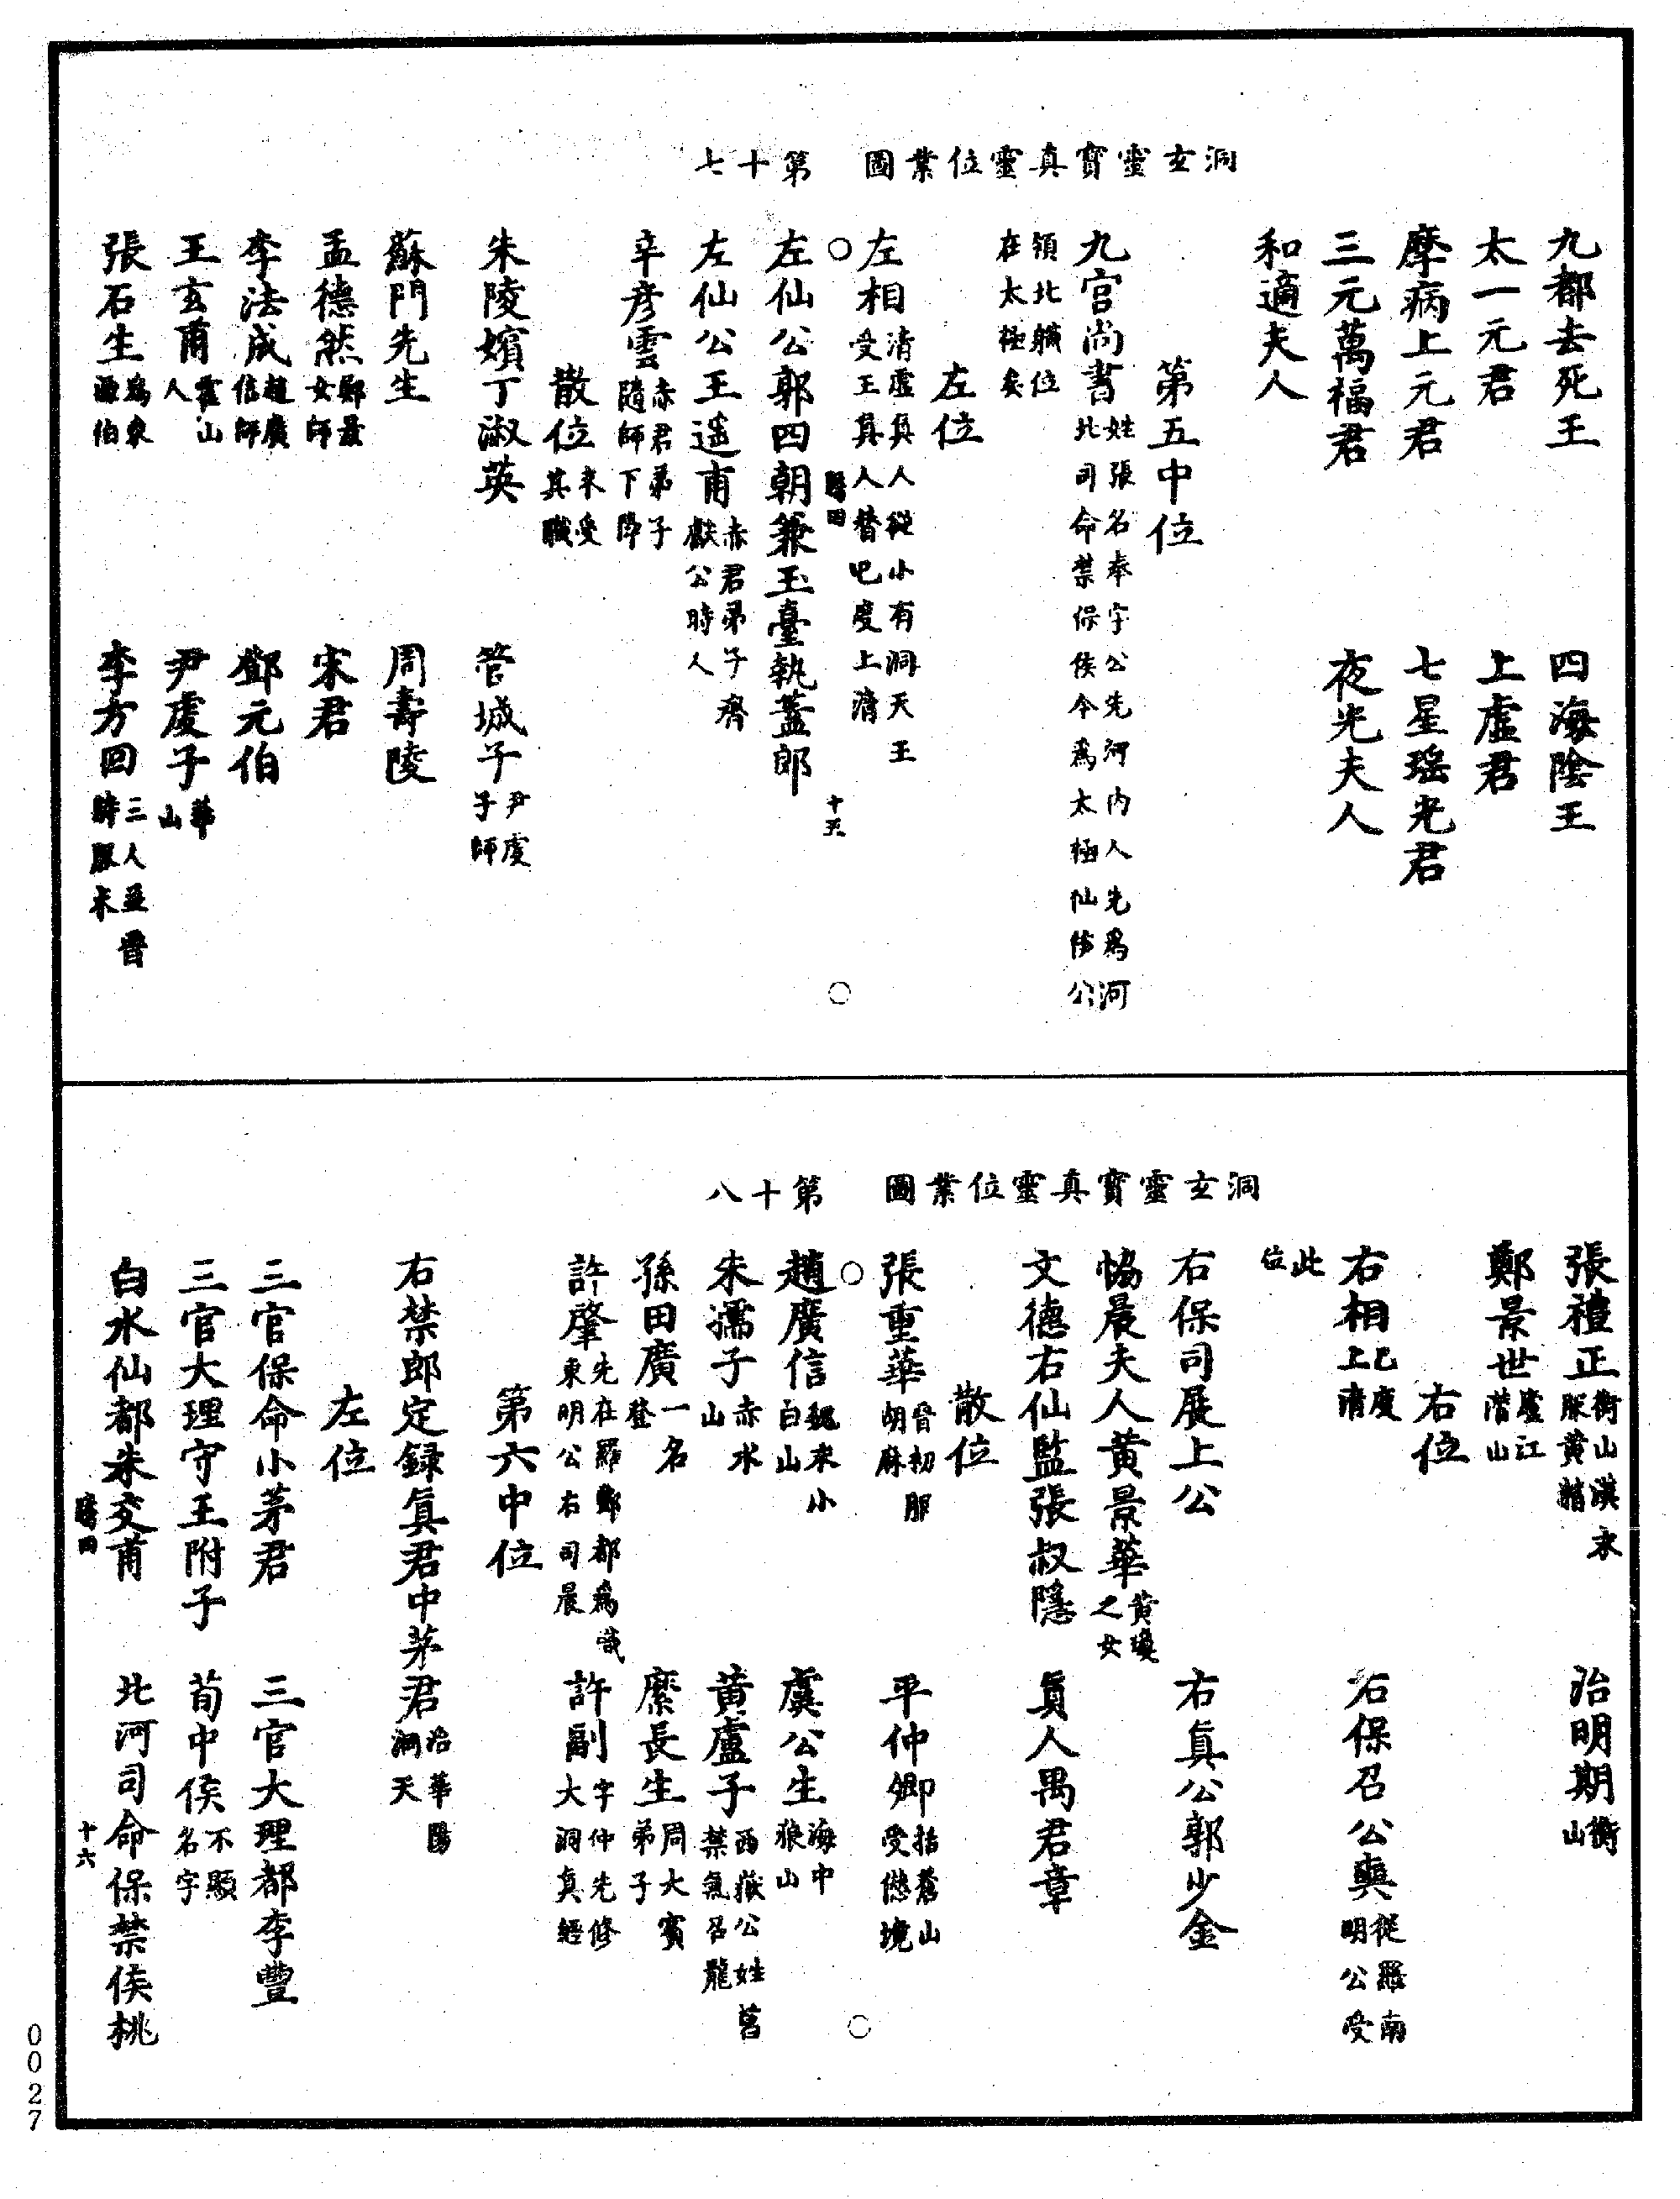 洞玄靈寶真靈位業圖　第十七
九都去死王　四海陰王
太一元君　上虛君
摩病上元君　七星瑤光君
三元萬福君　夜光夫人
和適夫人
第五中位
九宮尚書姓張名奉字公先河內人先爲河北司命禁保侯今爲太極仙侯公
領北職位在太極矣
左位
左相清虛真人從小有洞天王受王真人替已度上清
左仙公郭四朝兼玉臺執蓋郎
左仙公王遥甫赤君弟子齊獻公時人
辛彥雲赤君弟子隨師下降
散位未受其職
朱陵嬪丁淑英　管城子尹虔子師
蘇門先生　周壽陵
孟德然鄭景女師　宋君
李法成趙廣信師　鄧元伯
王玄甫霍山人　尹虔子華山
張石生爲東源伯　李方回三人並晉時服朮
十五
洞玄靈寶真靈位業圖　第十八
張禮正衡山漢末服黃精　治明期衡山
鄭景世廬江潛山
右位
右相已度上清　右保召公奭從羅南明公受
此位
右保司展上公　右真公郭少金
恊晨夫人黃景華黃瓊之女
文德右仙監張叔隱　真人禺君章
散位
張重華晉初服胡麻　平仲卿括蒼山受僊境
趙廣信魏末小白山　虞公生海中狼山
朱孺子赤水山　黃盧子西嶽公姓葛禁氣召龍
孫田廣一名登　縻長生周大賓弟子
許肇先在羅酆都爲職東明公右司晨　許副字仲先修大洞真經
第六中位
右禁郎定録真君中茅君治華陽洞天
左位
三官保命小茅君　三官大理都李豐
三官大理守王附子　荀中侯不顯名字
白水仙都朱交甫　北河司命保禁侯桃
十六
0027